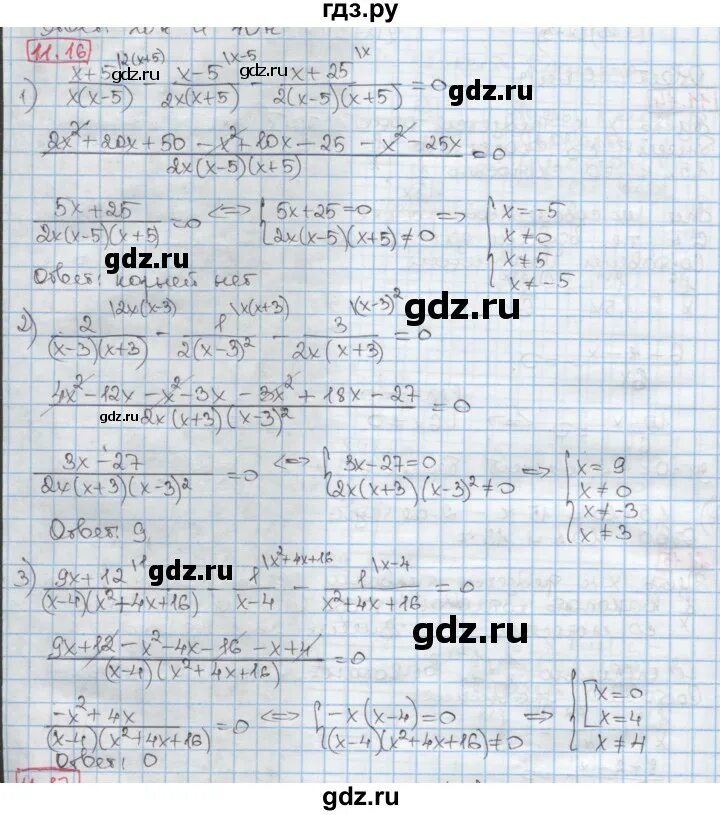 гдз.ру
11.16
1) x+5 |2(x+5) / x(x-5) - x-5 |x-5 / 2x(x+5) - x+25 |x / 2(x-5)(x+5) = 0
gdz.ru gdz.ru gdz.ru
2x²+20x+50-x²+10x-25-x²-25x / 2x(x-5)(x+5) = 0
5x+25 / 2x(x-5)(x+5) = 0 <=> { 5x+25=0 => { x=-5
2x(x-5)(x+5)≠0 x≠0
x≠5
gdz.ru
Ответ: корней нет x≠-5
2) 2 |2x(x-3) / (x-3)(x+3) - 1 |x(x+3) / 2(x-3)² - 3 |(x-3)² / 2x(x+3) = 0
gdz.ru
4x²-12x-x²-3x-3x²+18x-27 / 2x(x+3)(x-3)² = 0
gdz.ru
3x-27 / 2x(x+3)(x-3)² = 0 <=> { 3x-27=0 => { x=9
2x(x+3)(x-3)²≠0 x≠0
x≠-3
Ответ: 9 x≠3
3) 9x+12 |1 / (x-4)(x²+4x+16) - 1 |x²+4x+16 / x-4 - 1 |x-4 / x²+4x+16 = 0
gdz.ru
gdz.ru
9x+12-x²-4x-16-x+4 / (x-4)(x²+4x+16) = 0
-x²+4x / (x-4)(x²+4x+16) = 0 <=> { -x(x-4)=0 => { [ x=0
(x-4)(x²+4x+16)≠0 x=4
x≠4
Ответ: 0
gdz.ru